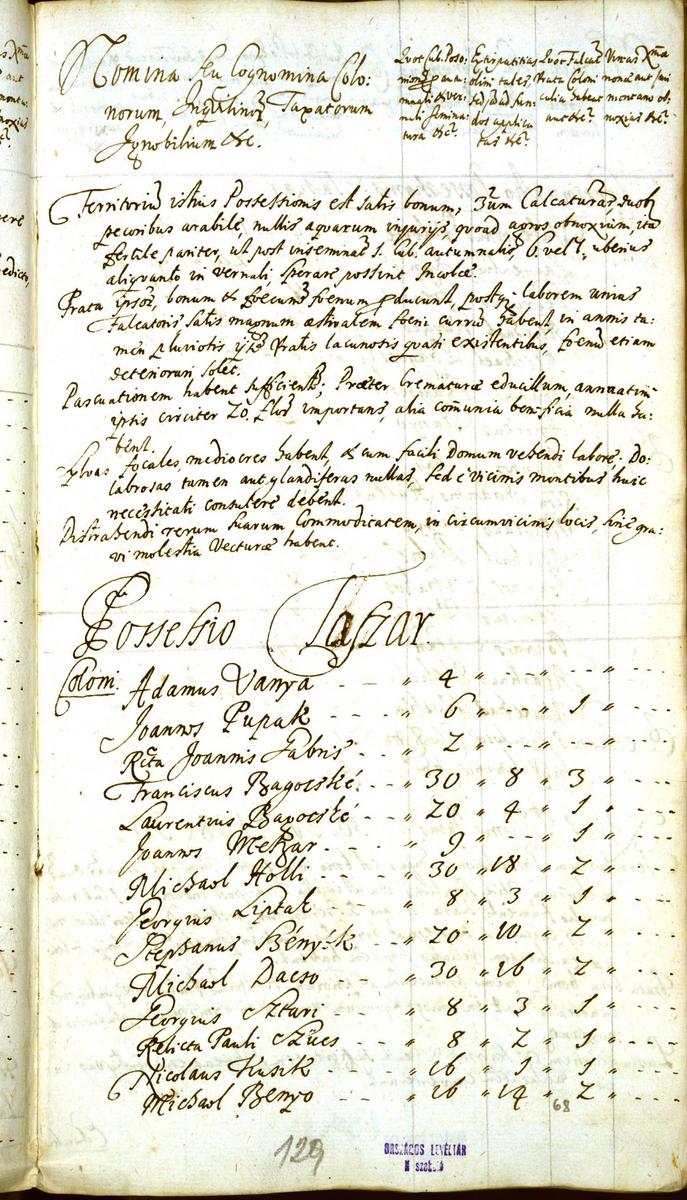 Nomina seu Cognomina Colo:
norum, Inquilinor, Taxatorum
Ignobilium &c.
Quot Cub. Poso:
maalis & ver:
nali semina:
tura &c
Extirpatitias
olim tales,
sed ad fun:
dos applica:
tas &c
Quot Falcat
Prata Coloni
culia habent
aut &c
Vineas
nonae aut
montano ob:
noxias &c
Territorium istius Possessionis est satis bonum, 3um Calcaturae, duobq
pecoribus arabile, nullis aquarum injurijs, quoad agros obnoxium, ita
fertile pariter, ut post inseminat 1. Cub. autumnalis, 6. vel 7, uberius
aliquanto in vernali, sperare possint Incolae.
Prata ipsor, bonum & foecund foenum producunt, postq laborem unius
Falcatoris satis magnum aestivalem foeni currum habent, in annis ta:
men pluviosis Pratis lacunosis quasi existentibus, foenum etiam
deteriorari solet.
Pascuationem habent sufficient; Praeter Crematurae educillum, annuatim
ipsis circiter 20. flor importans, alia comunia beneficia nulla ha:
bent.
Sylvas focales, mediocres habent, & cum facili Domum vehendi labore; Do:
labrosas tamen aut glandiferas nullas, sed e vicinis montibus huic
necessitati consulere debent.
Distrahendi rerum suarum Commoditatem, in circumvicinis locis, sine gra:
vi molestia Vecturae habent.
Possessio Taszar.
Coloni. Adamus Vanya - - - " 4 " - - - " - - - " - - -
Joannes Pupak - - - " 6 " - - - " 1 " - - -
Rcta Joannis Gabris - " 2 " - - - " - - - " - - -
Franciscus Bagocské. " 30 " 8 " 3 " - - -
Laurentius Bagocské " 20 " 4 " 1 " - - -
Joannes - - - " 9 " - - - " 1 " - - -
Michael Holli - - - " 30 " 18 " 2 " - - -
Georgius Liptak - - - " 8 " 3 " 1 " - - -
Stephanus - - - " 20 " 10 " 2 " - - -
Michael Dacso - - - " 30 " 16 " 2 " - - -
Georgius Szturi - - - " 8 " 3 " 1 " - - -
Relicta Pauli Szücs - - " 8 " 2 " 1 " - - -
Nicolaus Kusik - - - " 16 " 1 " 1 " - - -
Michael Benyo - - - " 16 " 14 " 2 " - - -
68
129
ORSZÁGOS LEVÉLTÁR